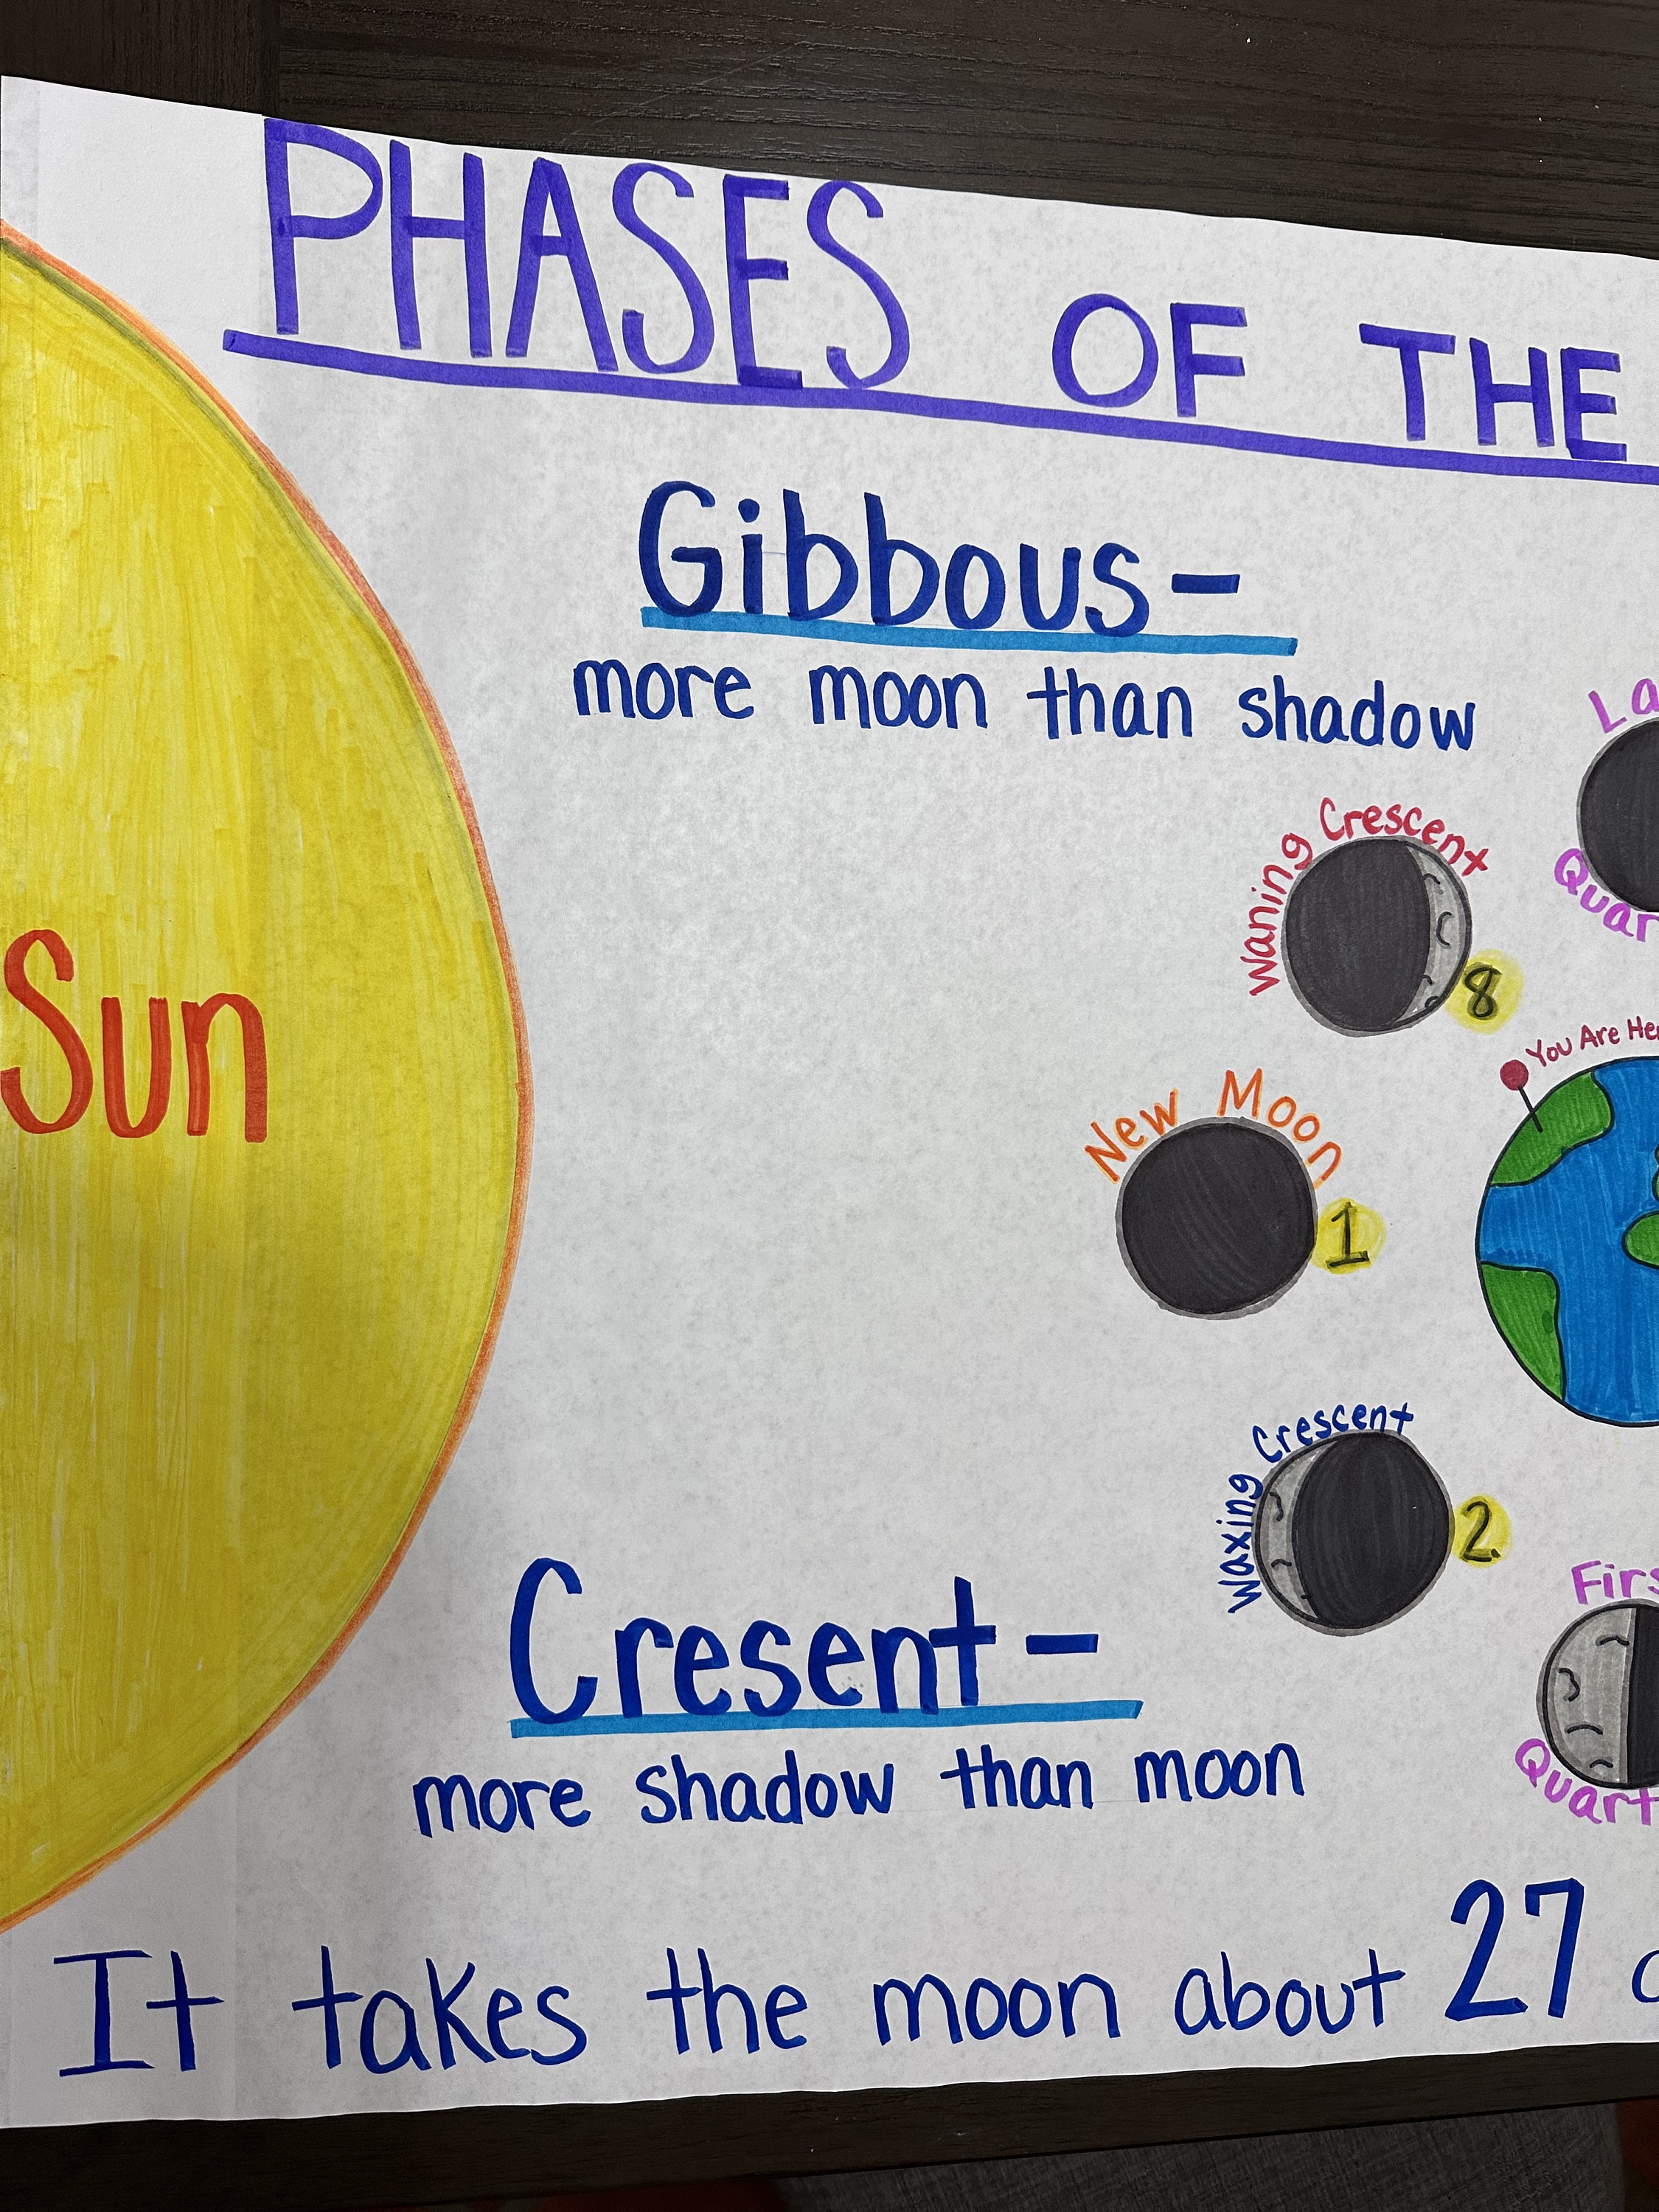 PHASES OF THE
Gibbous-
more moon than shadow
La
Quar
Waning Crescent
8
You Are Her
Sun
New Moon
1
Waxing Crescent
2.
Firs
Quart
Cresent-
more shadow than moon
It takes the moon about 27